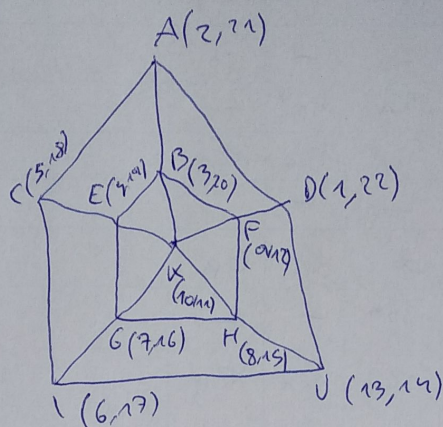 A(2,21)
B(3,20)
C(5,18)
E(4,19)
D(1,22)
F
(9,12)
K
(10,11)
G(7,16)
H
(8,15)
I (6,17)
J (13,14)